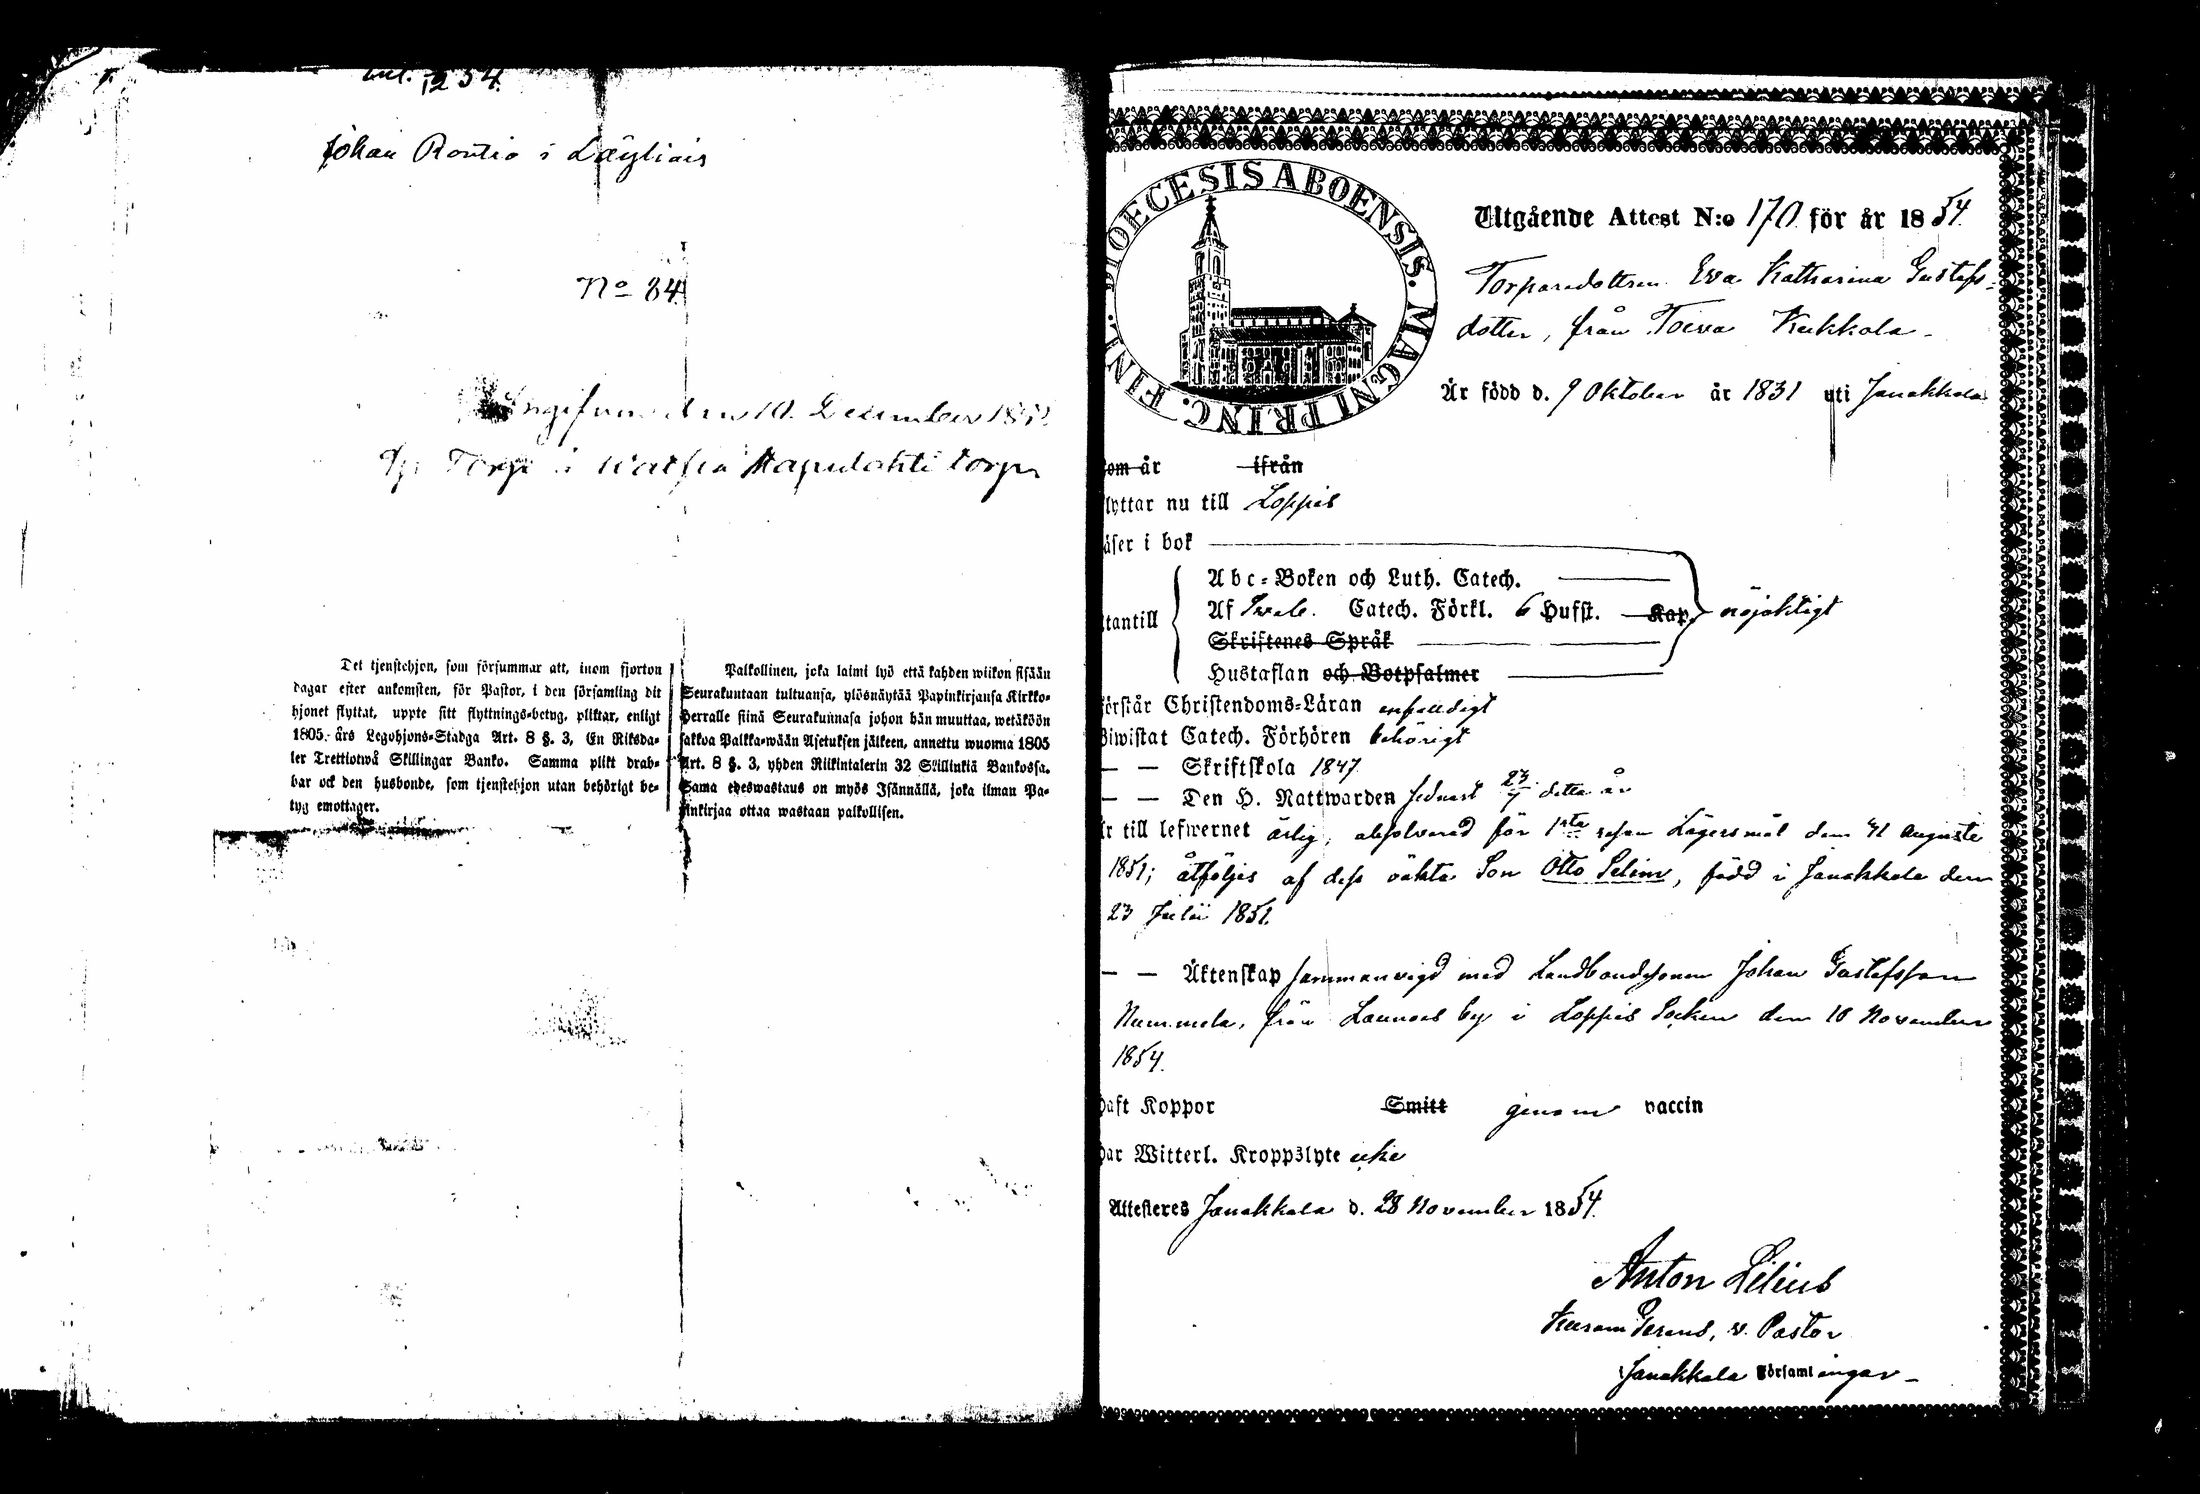 1254.
Johan Rontio i Läyliäis
No 84
Ingifven den 10. December 185
Torp i Kapulahti torp
Det tjenstehjon, som försummar att, inom fjorton
dagar efter ankomsten, för Pastor, i den församling dit
hjonet flyttat, uppte sitt flyttnings-betyg, pliktar, enligt
1805 års Legohjons-Stadga Art. 8 §. 3, En Riksda-
ler Trettiotwå Skillingar Banko. Samma plikt drab-
bar ock den husbonde, som tjenstehjon utan behörigt be-
tyg emottager.
Palkollinen, joka laimi lyö että kahden wiikon sisään
Seurakuntaan tultuansa, ylösnäytää Papinkirjansa Kirkko-
herralle siinä Seurakunnasa johon hän muuttaa, wetäköön
sakkoa Palkka-wään Asetuksen jälkeen, annettu wuonna 1805
Art. 8 §. 3, yhden Riikintalerin 32 Skillinkiä Bankossa.
Sama edeswastaus on myös Isännällä, joka ilman Pa-
pinkirjaa ottaa wastaan palkollisen.
DIOECESIS ABOENSIS. MAGNI PRINC. FINL.
Utgående Attest N:o 170 för år 1854.
Torparedottren Eva Katharina Gustafs-
dotter, från Toiva Kukkola
Är född d. 9 Oktober år 1831 uti Janakkala
som år ifrån
flyttar nu till Loppis
läser i bok
Abc-Boken och Luth. Catech.
utantill Af Svebe. Catech. Förkl. 6 Hufst. Kap. nöjaktigt
Skriftenes Språk
Hustaflan och Botpsalmer
förstår Christendoms-Läran enfaldigt
Biwistat Catech. Förhören behörigt
— — Skriftskola 1847
— — Den H. Nattwarden sednast 23/7 detta år
är till lefwernet ärlig, absolverad för 1sta resan Lägersmål den 21 Augusti
1851; åtföljes af dess oäkta Son Otto Selim, född i Janakkala den
23 Julii 1851.
— — Äktenskap sammanvigd med Landbondesonen Johan Gustafsson
Nummela, från Launois by i Loppis Socken den 10 November
1854.
haft Koppor Smitt genom vaccin
har Witterl. Kroppslyte icke
Attesteres Janakkala d. 28 November 1854.
Anton Lilius
v. Pastor
Janakkala Församlingar